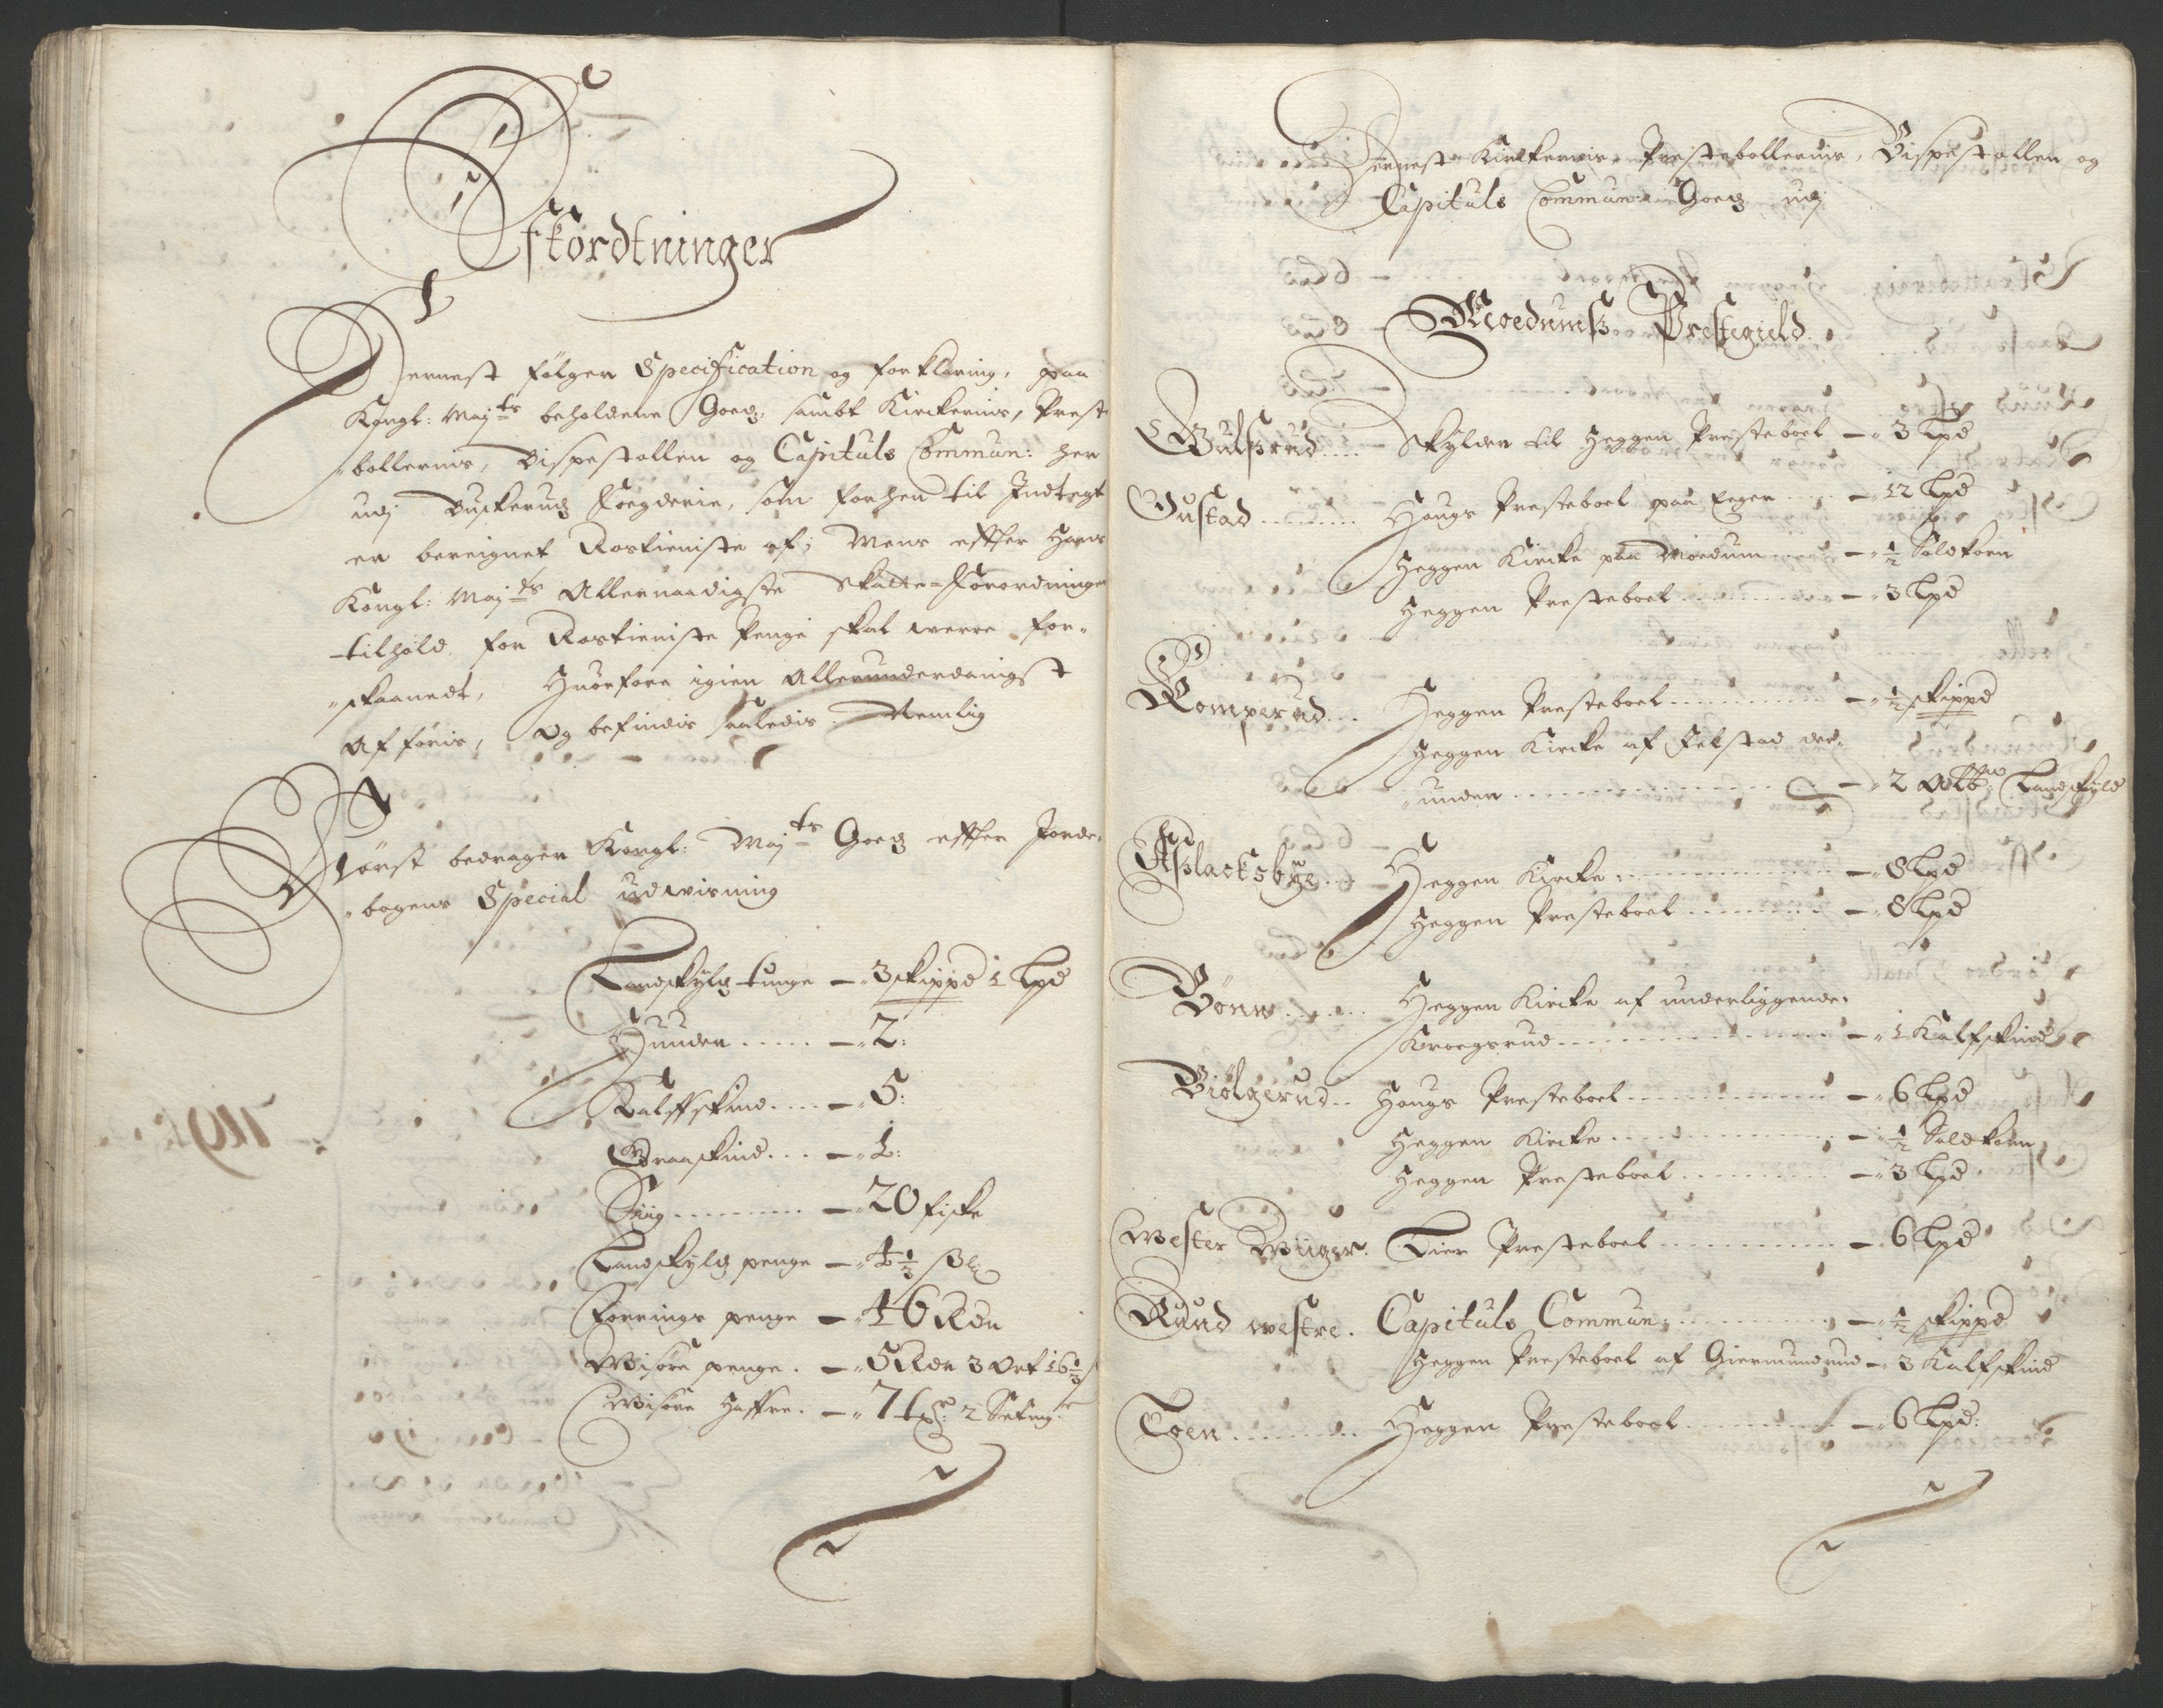 Afkordtninger
Dernest følger Specification og forklaring, paa
Kongl: Maj:ts beholdene Goedz, sambt Kirkernis, Preste
bollernis, Bispestollen og Capituls Commun: her
udj Buskerudz Foegderie, som forhen til Indtegt
er bereignet Rostieniste af; Mens effter Hans
Kongl: Maj:ts Allernaadigste Skatte-Forordninger
tilhold for Rostieniste Penge skal werre for-
skaanedt, Huorfore igien Allerunderdanigst
Afføris, og befindis saaledis Nemlig
Først bedrager Kongl: Maj:ts Goedz effter Jorde-
bogens Special udwisning
Landskyldz tunge — 3 skippd 1 Lpd
Huuder ..... — 2:
Kalffskind .... — 5:
Graaskind ... — 1:
Siig ......... — 20 fiske
Landskyldz penge — 4 1/3 ß
Foerings penge — 46 Rdr
Wisøre penge . — 5 Rdr 3 Ort 16
Wisøre Haffre . — 7 tr: 2 Setting
Dernest Kirkernis, Prestebollernis, Bispestollen og
Capituls Commun: Goedz udj
Moedumß Prestegield
Gulßrud .... Skylder til Heggen Presteboel — 3 Lpd
Gustad ......... Hougs Presteboel paa Eger .... — 12 Lpd
Heggen Kircke paa Moedum ..... — 1/2 Sold korn
Heggen Presteboel ............ — 3 Lpd
Komperud ... Heggen Presteboel ............ — 1/2 skippd
Heggen Kircke af Ekestad der-
under ................ — 2 Landskyld
Aßlacksbye ... Heggen Kircke ............... — 8 Lpd
Heggen Presteboel ......... — 8 Lpd
Bønn ...... Heggen Kircke af underliggende
Kroegsrud .................. — 1 Kalfskind
Biølgerud .. Hougs Presteboel ............. — 6 Lpd
Heggen Kircke .............. — 1/2 Sold korn
Heggen Presteboel ......... — 3 Lpd
Wester Wiiger . Lier Presteboel ............ — 6 Lpd
Ruud westre . Capituls Commun: .......... — 1/2 skippd
Heggen Presteboel af Giermundrud — 3 Kalfskind
Toen ......... Heggen Presteboel .......... — 6 Lpd: